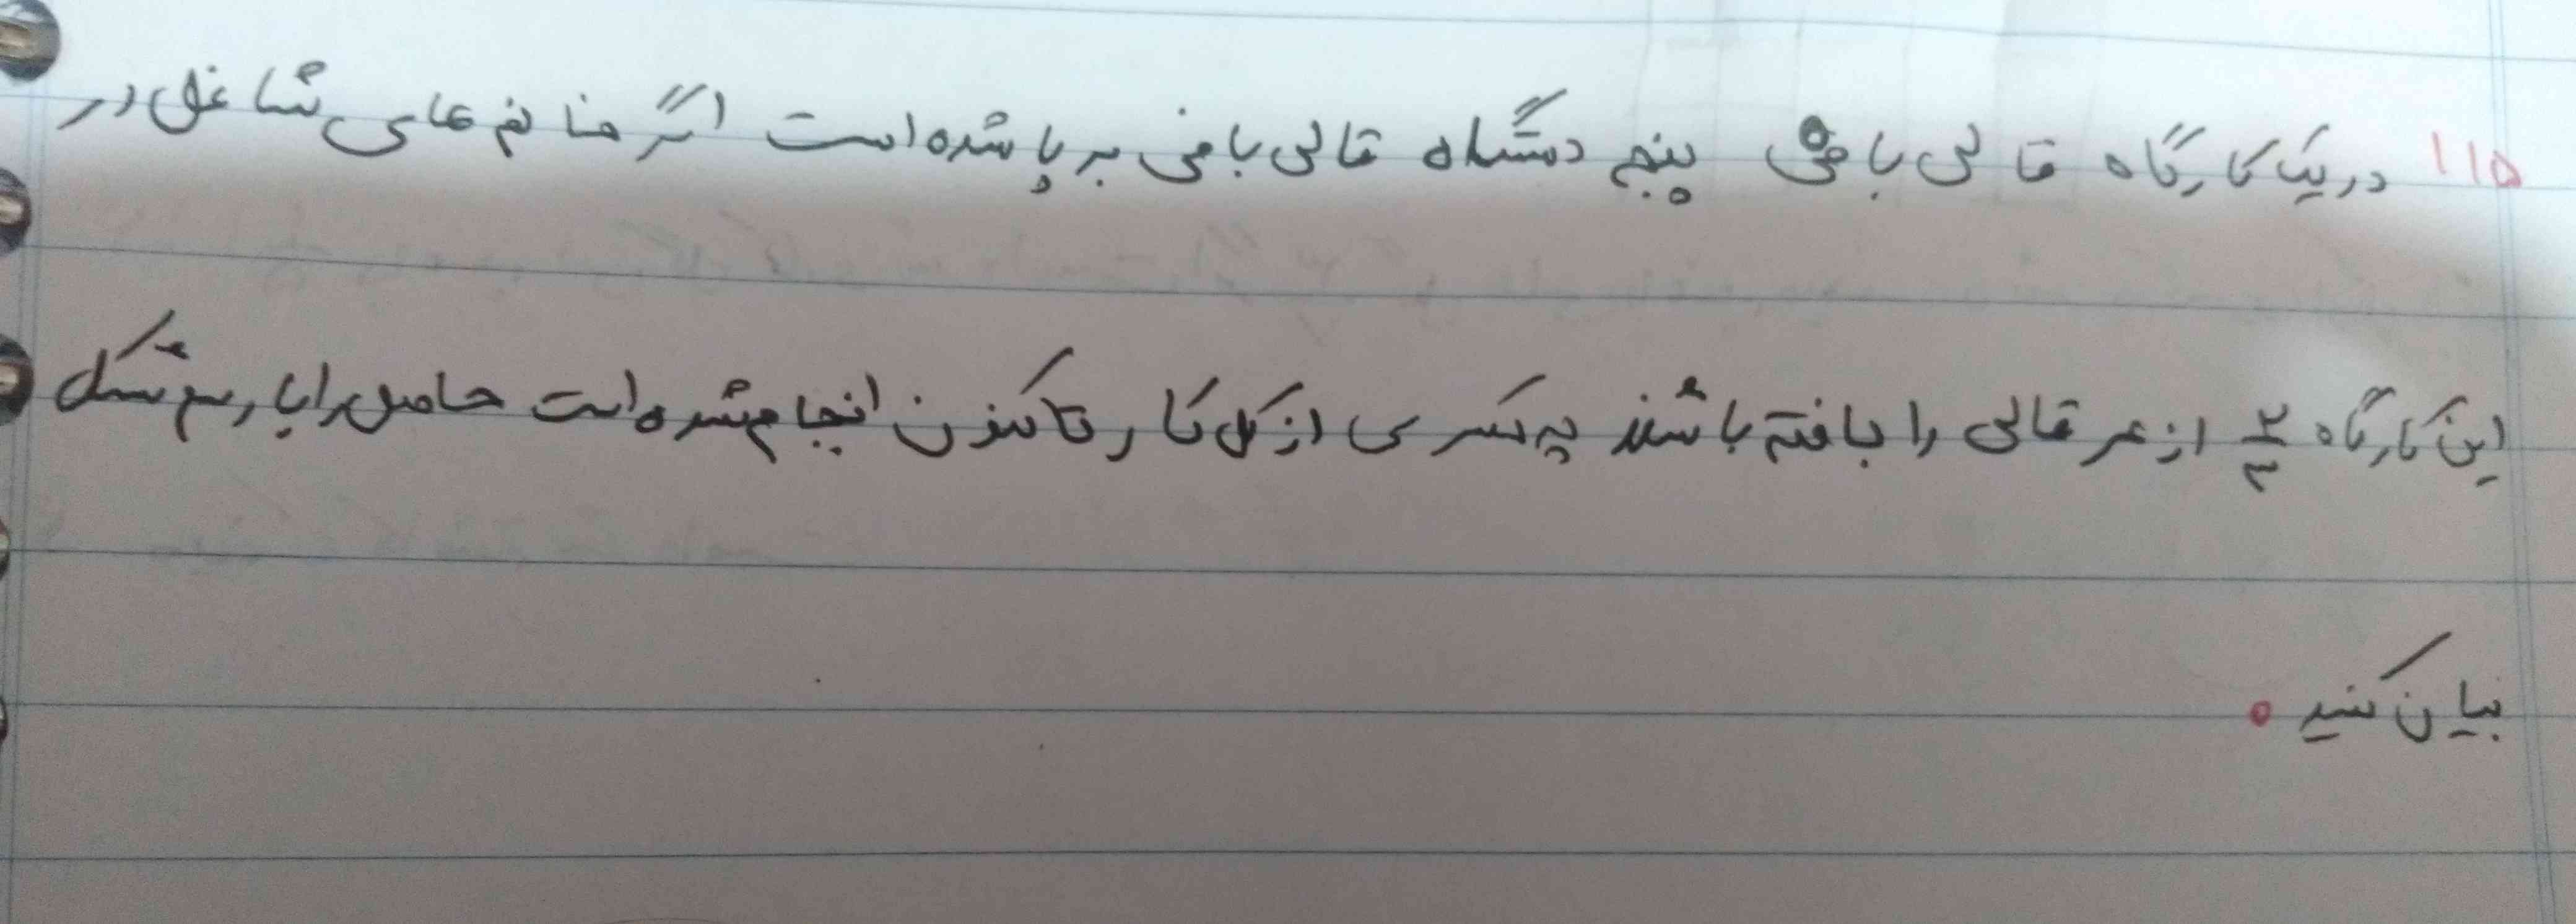 ۱۱۵ در یک کارگاه قالی بافی پنج دستگاه قالی بافی بر پا شده است اگر خانم های شاغل در
این کارگاه ۲/۳ از هر قالی را بافته باشند چه کسری از کل کار تاکنون انجام شده است حاصل را با رسم شکل
بیان کنید .